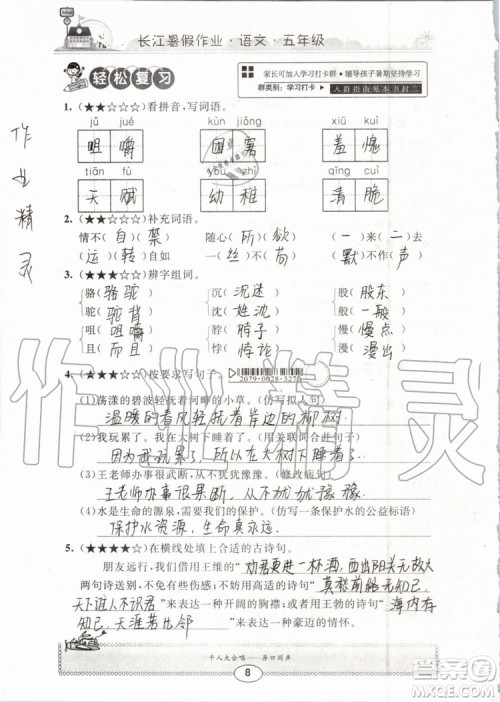 长江暑假作业·语文·五年级
轻松复习
家长可加入学习打卡群·辅导孩子暑期坚持学习
群类别：学习打卡 入群指南见本书封二
作业精灵
1.（★★☆☆☆）看拼音，写词语。
jǔ jué kùn jiǒng xiū kuì
咀嚼 困窘 羞愧
tiān fù yòu zhì qīng cuì
天赋 幼稚 清脆
2.（★★☆☆☆）补充词语。
情不（自）（禁） 随心（所）（欲） （一）来（二）去
（运）（转）自如 一（丝）不（苟） （默）不作（声）
3.（★★★☆☆）辨字组词。
骆（骆驼） 沉（沉迷） 股（股东）
驼（驼背） 沈（姓沈） 般（一般）
咀（咀嚼） 脖（脖子） 慢（慢点）
且（而且） 悖（悖论） 漫（漫出）
4.（★★★☆☆）按要求写句子。
2079-0028-3276
(1)荡漾的碧波轻抚着河畔的小草。（仿写拟人句）
温暖的春风轻抚着岸边的柳树。
(2)我玩累了。我在大树下睡着了。（用关联词合并句子）
因为我玩累了，所以我在大树下睡着了。
(3)王老师办事很果断，从不犹犹豫豫。（修改病句）
王老师办事很果断，从不犹豫。
(4)水是生命的源泉，需要我们的保护。（仿写一条保护水的公益标语）
保护水资源，生命真永远。
5.（★★★★☆）在横线处填上合适的古诗句。
朋友远行，我们借用王维的“劝君更进一杯酒，西出阳关无故人
两句诗送别，不免有些伤感；不妨用高适的诗句“莫愁前路无知己，
天下谁人不识君”来表达一种开阔的胸襟；或者我们用王勃的诗句“海内存
知己，天涯若比邻”来表达一种豪迈的情怀。
千人大合唱——异口同声
8
作业精灵